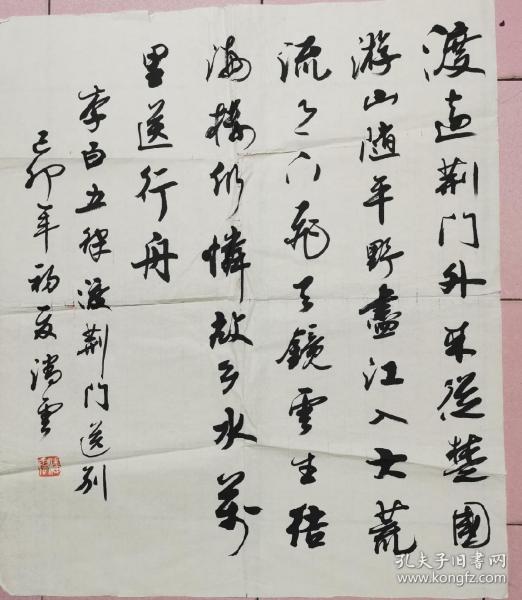 渡遠荆门外来從楚國
游山随平野盡江入大荒
流月下飛天鏡雲生结
海楼仍憐故乡水萬
里送行舟
李白五律渡荆门送别
己卯年初夏满雲
孔夫子旧书网
www.kongfz.com